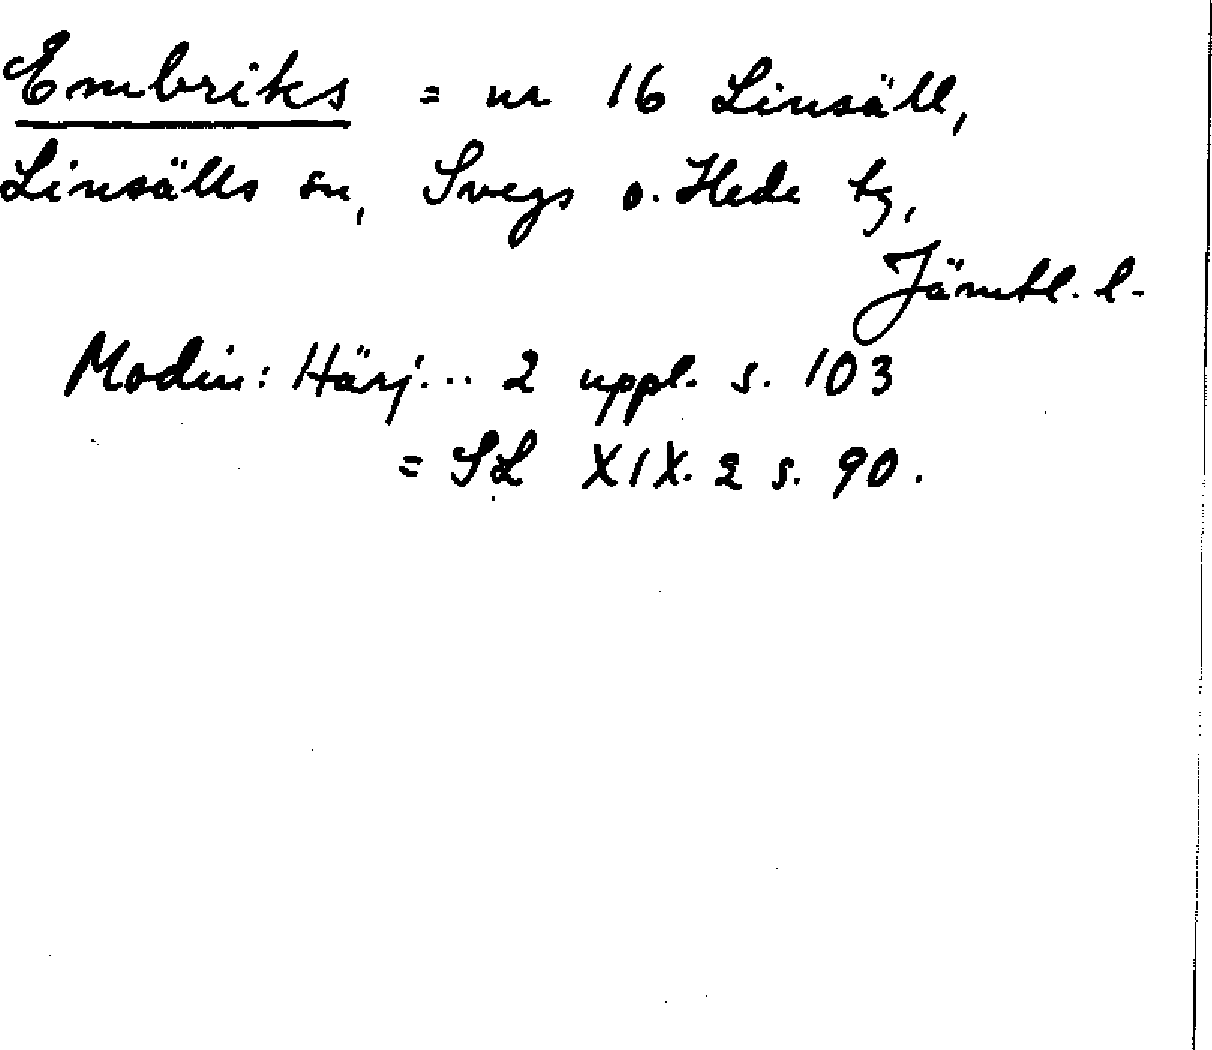 Embriks = nr 16 Linsäll,
Linsälls sn, Svegs o. Hede tg,
Jämtl. l.
Modin: Härj... 2 uppl. s. 103
= SL XIX. 2 s. 90.